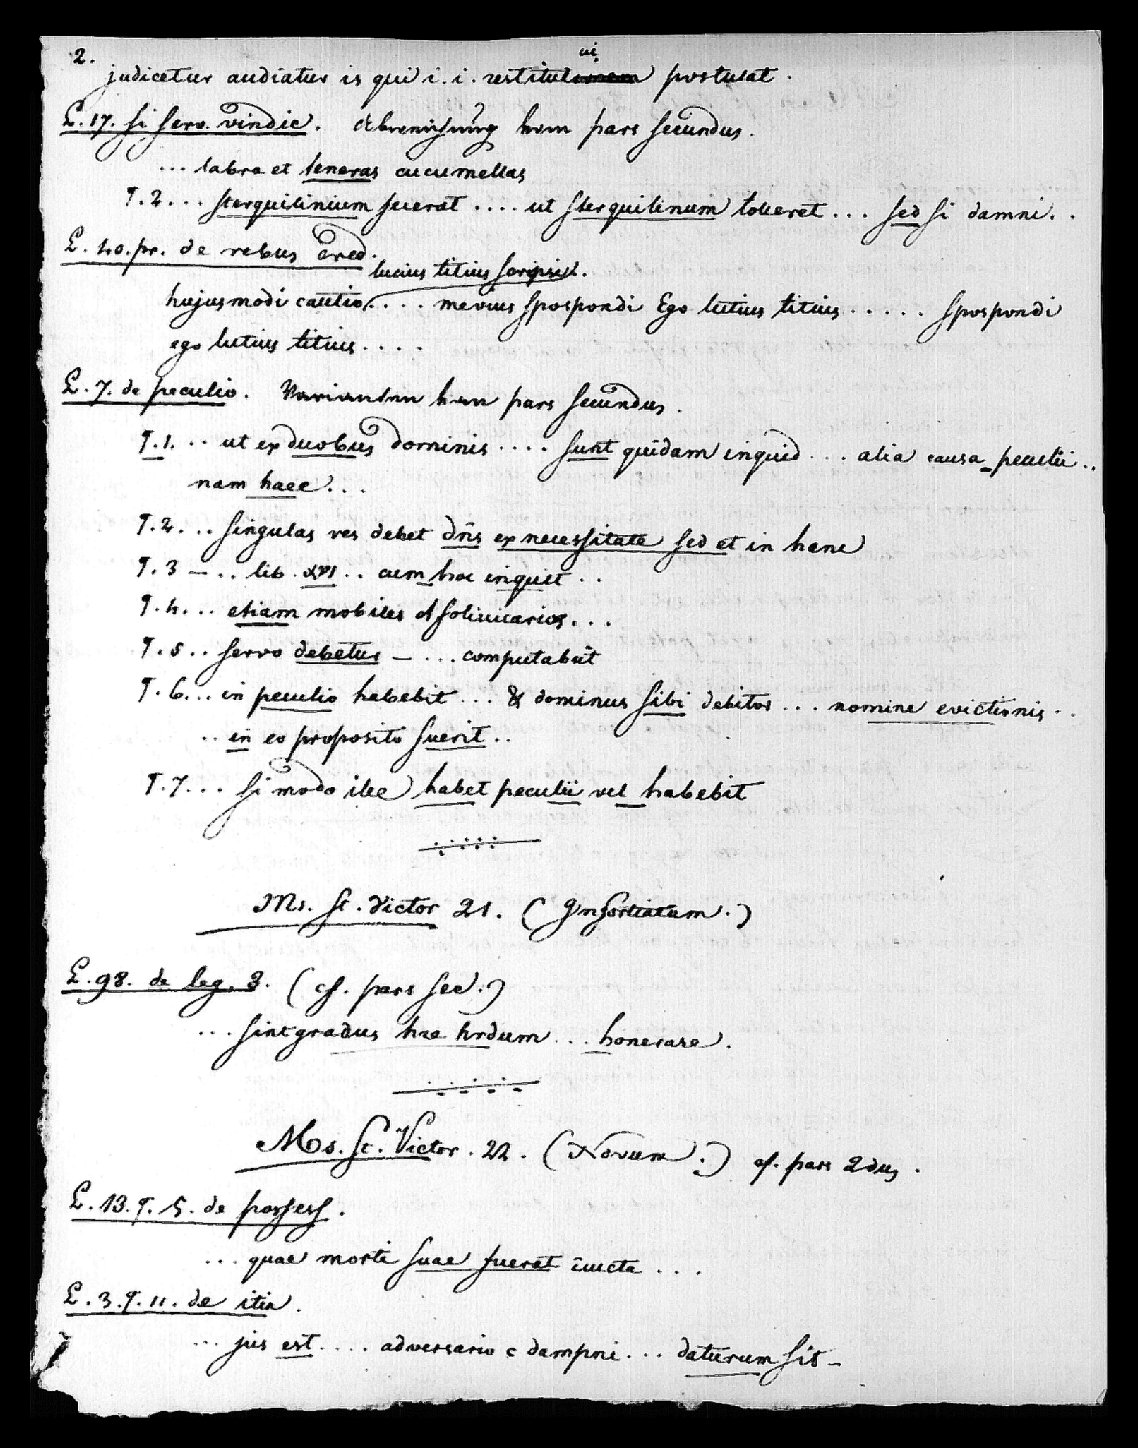 2.
judicetur audiatur is qui i. i. restitui postulat.
L. 17. si serv. vindic. Abweichung vom pars secundus.
... labra et teneras cucumellas
§. 2... sterquilinium fecerat .... ut sterquilinum tolleret ... sed si damni..
L. 40. pr. de rebus cred.
lucius titius scripsit.
hujusmodi cautio .... mevius spospondi Ego lutius titius ..... spospondi
ego lutius titius ....
L. 7. de peculio. Varianten vom pars secundus.
§. 1. .. ut ex duobus dominis .... sunt quidam inquid ... alia causa peculii ..
nam haec ...
§. 2... singulas res debet dns ex necessitate sed et in hanc
§. 3 — .. lib. XVI .. cum hoc inquit ..
§. 4... etiam mobiles
§. 5.. servo debetur — ... computabūt
§. 6... in peculio habebit ... & dominus sibi debitor ... nomine evictionis ..
.. in eo proposito fuerit ..
§. 7... si modo ille habet peculii vel habebit
Ms. St. Victor 21. (Infortiatum.)
L. 98. de leg. 3. (cf. pars sec.)
... sint gradus hae ... honerare.
Ms. St. Victor. 22. (Novum.) cf. pars 2dus.
L. 13. §. 5. de possess.
... quae morti suae fuerat iūcta ...
L. 3. §. 11. de itin.
... jus est .... adversario c dampni ... daturum sit —